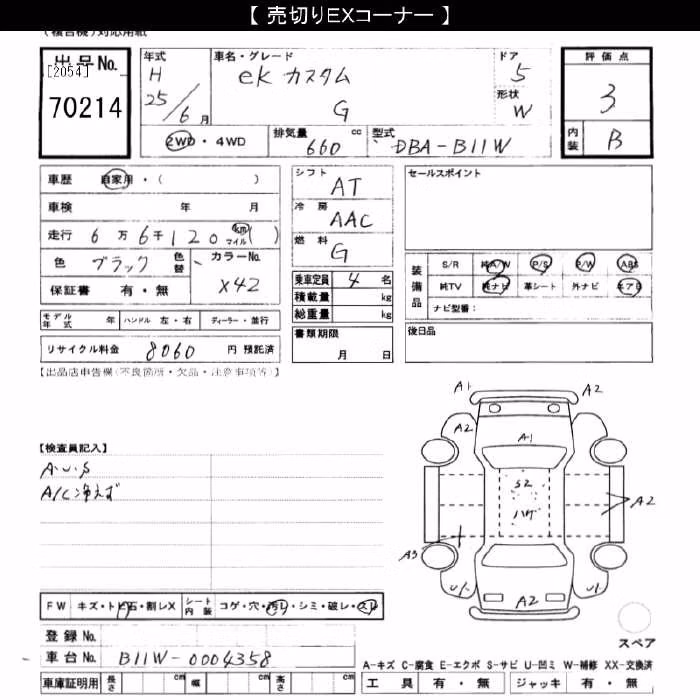 【 売切りEXコーナー 】
(複合機)対応用紙
出品No.
[2054]
70214
年式
H
25/6月
車名・グレード
eKカスタム
G
ドア
5
形状
W
評価点
3
内装
B
2WD・4WD
排気量 660 cc
型式 DBA-B11W
車歴 自家用・( )
車検 年 月
走行 6万6千120 km マイル ( )
色 ブラック 色替
カラーNo. X42
保証書 有・無
シフト AT
冷房 AAC
燃料 G
乗車定員 4 名
積載量 kg
総重量 kg
書類期限
月 日
セールスポイント
装備品
S/R 純A/W P/S P/W ABS
純TV 純ナビ 革シート 外ナビ エアB
ナビ型番:
後日品
モデル年式 年 ハンドル 左・右 ディーラー・並行
リサイクル料金 8060 円 預託済
【出品店申告欄(不良箇所・欠品・注意事項等)】
【検査員記入】
A・U・S
A/C冷えず
A1
A2
A2
A1
S2
ハゲ
A2
A3
A2
U1
U1
スペア
FW キズ・トビ石・割レX
シート内装 コゲ・穴・汚レ・シミ・破レ・スレ
登録No.
車台No. B11W-0004358
車庫証明用 長さ cm 幅 cm 高さ cm
A-キズ C-腐食 E-エクボ S-サビ U-凹ミ W-補修 XX-交換済
工具 有・無 ジャッキ 有・無